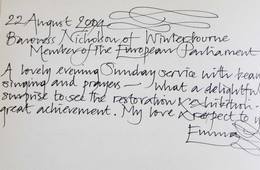 22 August 2009
Baroness Nicholson of Winterbourne
Member of the European Parliament
A lovely evening Sunday service with
singing and prayers — what a delightful
surprise to see the restoration & exhibition -
great achievement. My love & respect to
Emma